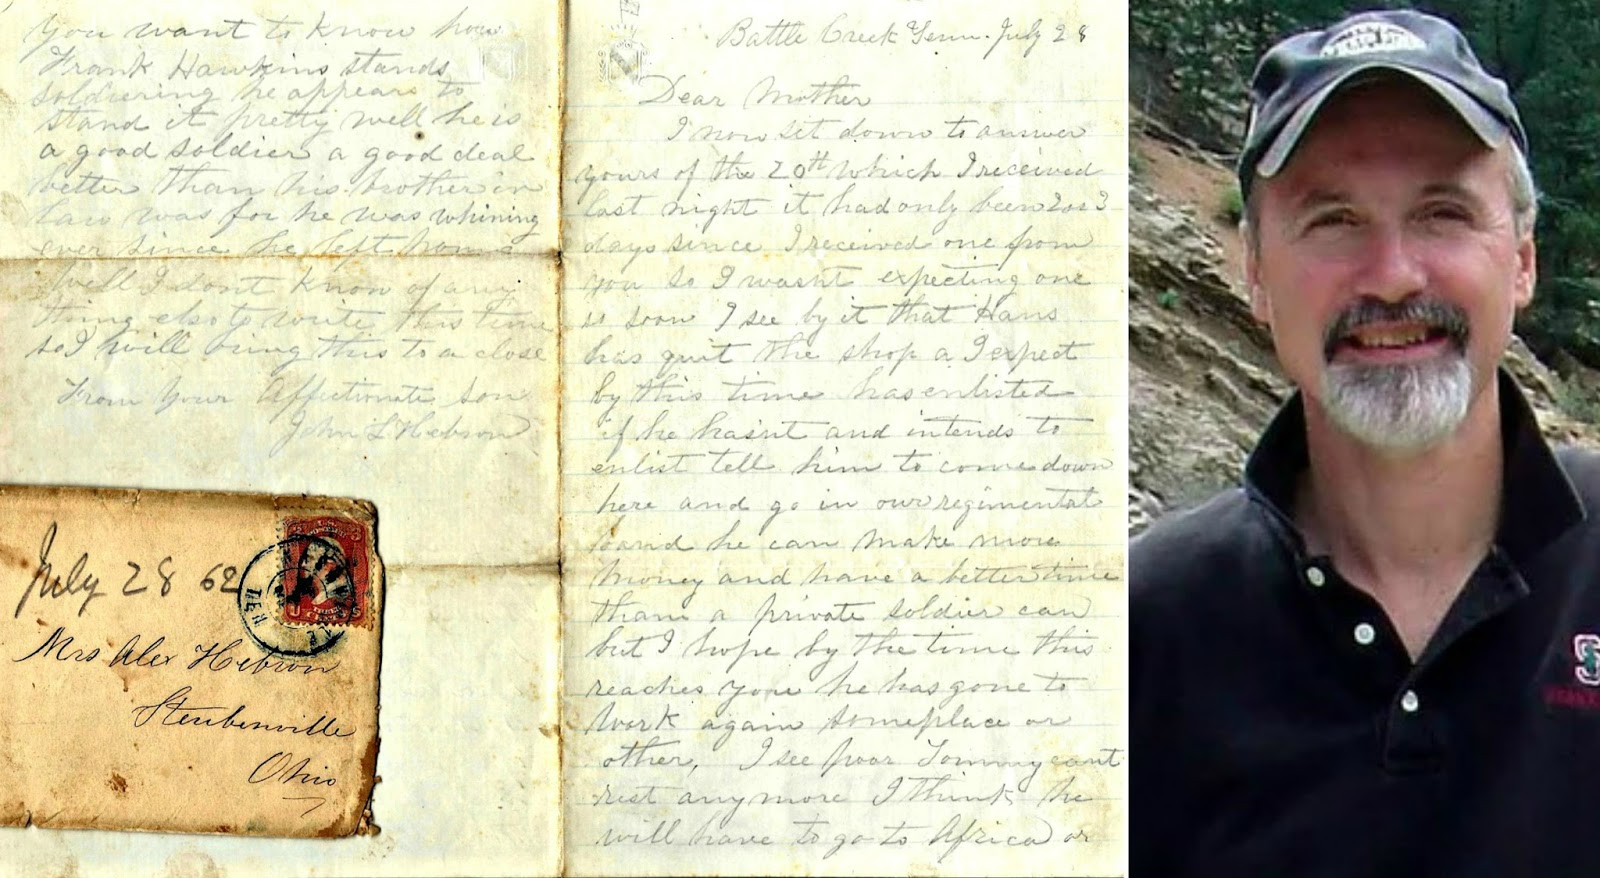 Battle Creek Tenn. July 28
Dear Mother
I now set down to answer
yours of the 20th which I received
last night it had only been 2 or 3
days since I received one from
you so I wasnt expecting one
so soon I see by it that Hans
has quit the shop a I expect
by this time has enlisted
if he hasnt and intends to
enlist tell him to come down
here and go in our regimental
band he can make more
money and have a better time
than a private soldier can
but I hope by the time this
reaches you he has gone to
work again someplace or
other, I see poor Tommy cant
rest any more I think he
will have to go to Africa or
you want to know how
Frank Hawkins stands
soldiering he appears to
stand it pretty well he is
a good soldier a good deal
better than his brother in
law was for he was whining
ever since he left home
Well I dont know of any
thing else to write this time
so I will bring this to a close
From Your Affectionate son
John L Hebron
July 28 62
Mrs Alex Hebron
Steubenville
Ohio
S